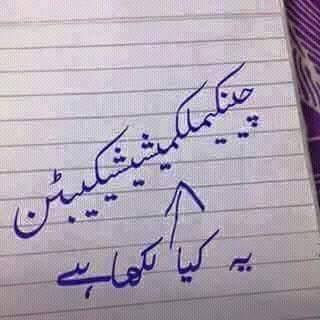 چینکیملکمیشیشیکیبٹن
یہ کیا لکھا ہے